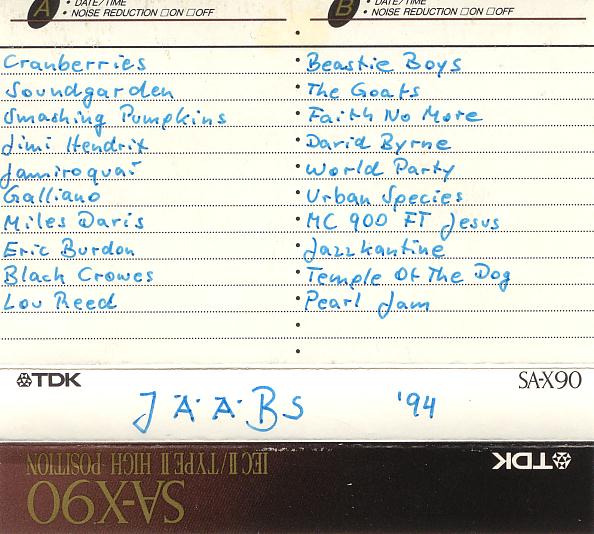 A • DATE/TIME B • DATE/TIME
• NOISE REDUCTION □ON □OFF • NOISE REDUCTION □ON □OFF
Cranberries • Beastie Boys
Soundgarden • The Goats
Smashing Pumpkins • Faith No More
Jimi Hendrix • David Byrne
Jamiroquai • World Party
Galliano • Urban Species
Miles Davis • MC 900 FT Jesus
Eric Burdon • Jazzkantine
Black Crowes • Temple Of The Dog
Lou Reed • Pearl Jam
TDK SA-X90
J A A B S '94
IEC II/TYPE II HIGH POSITION
SA-X90 TDK